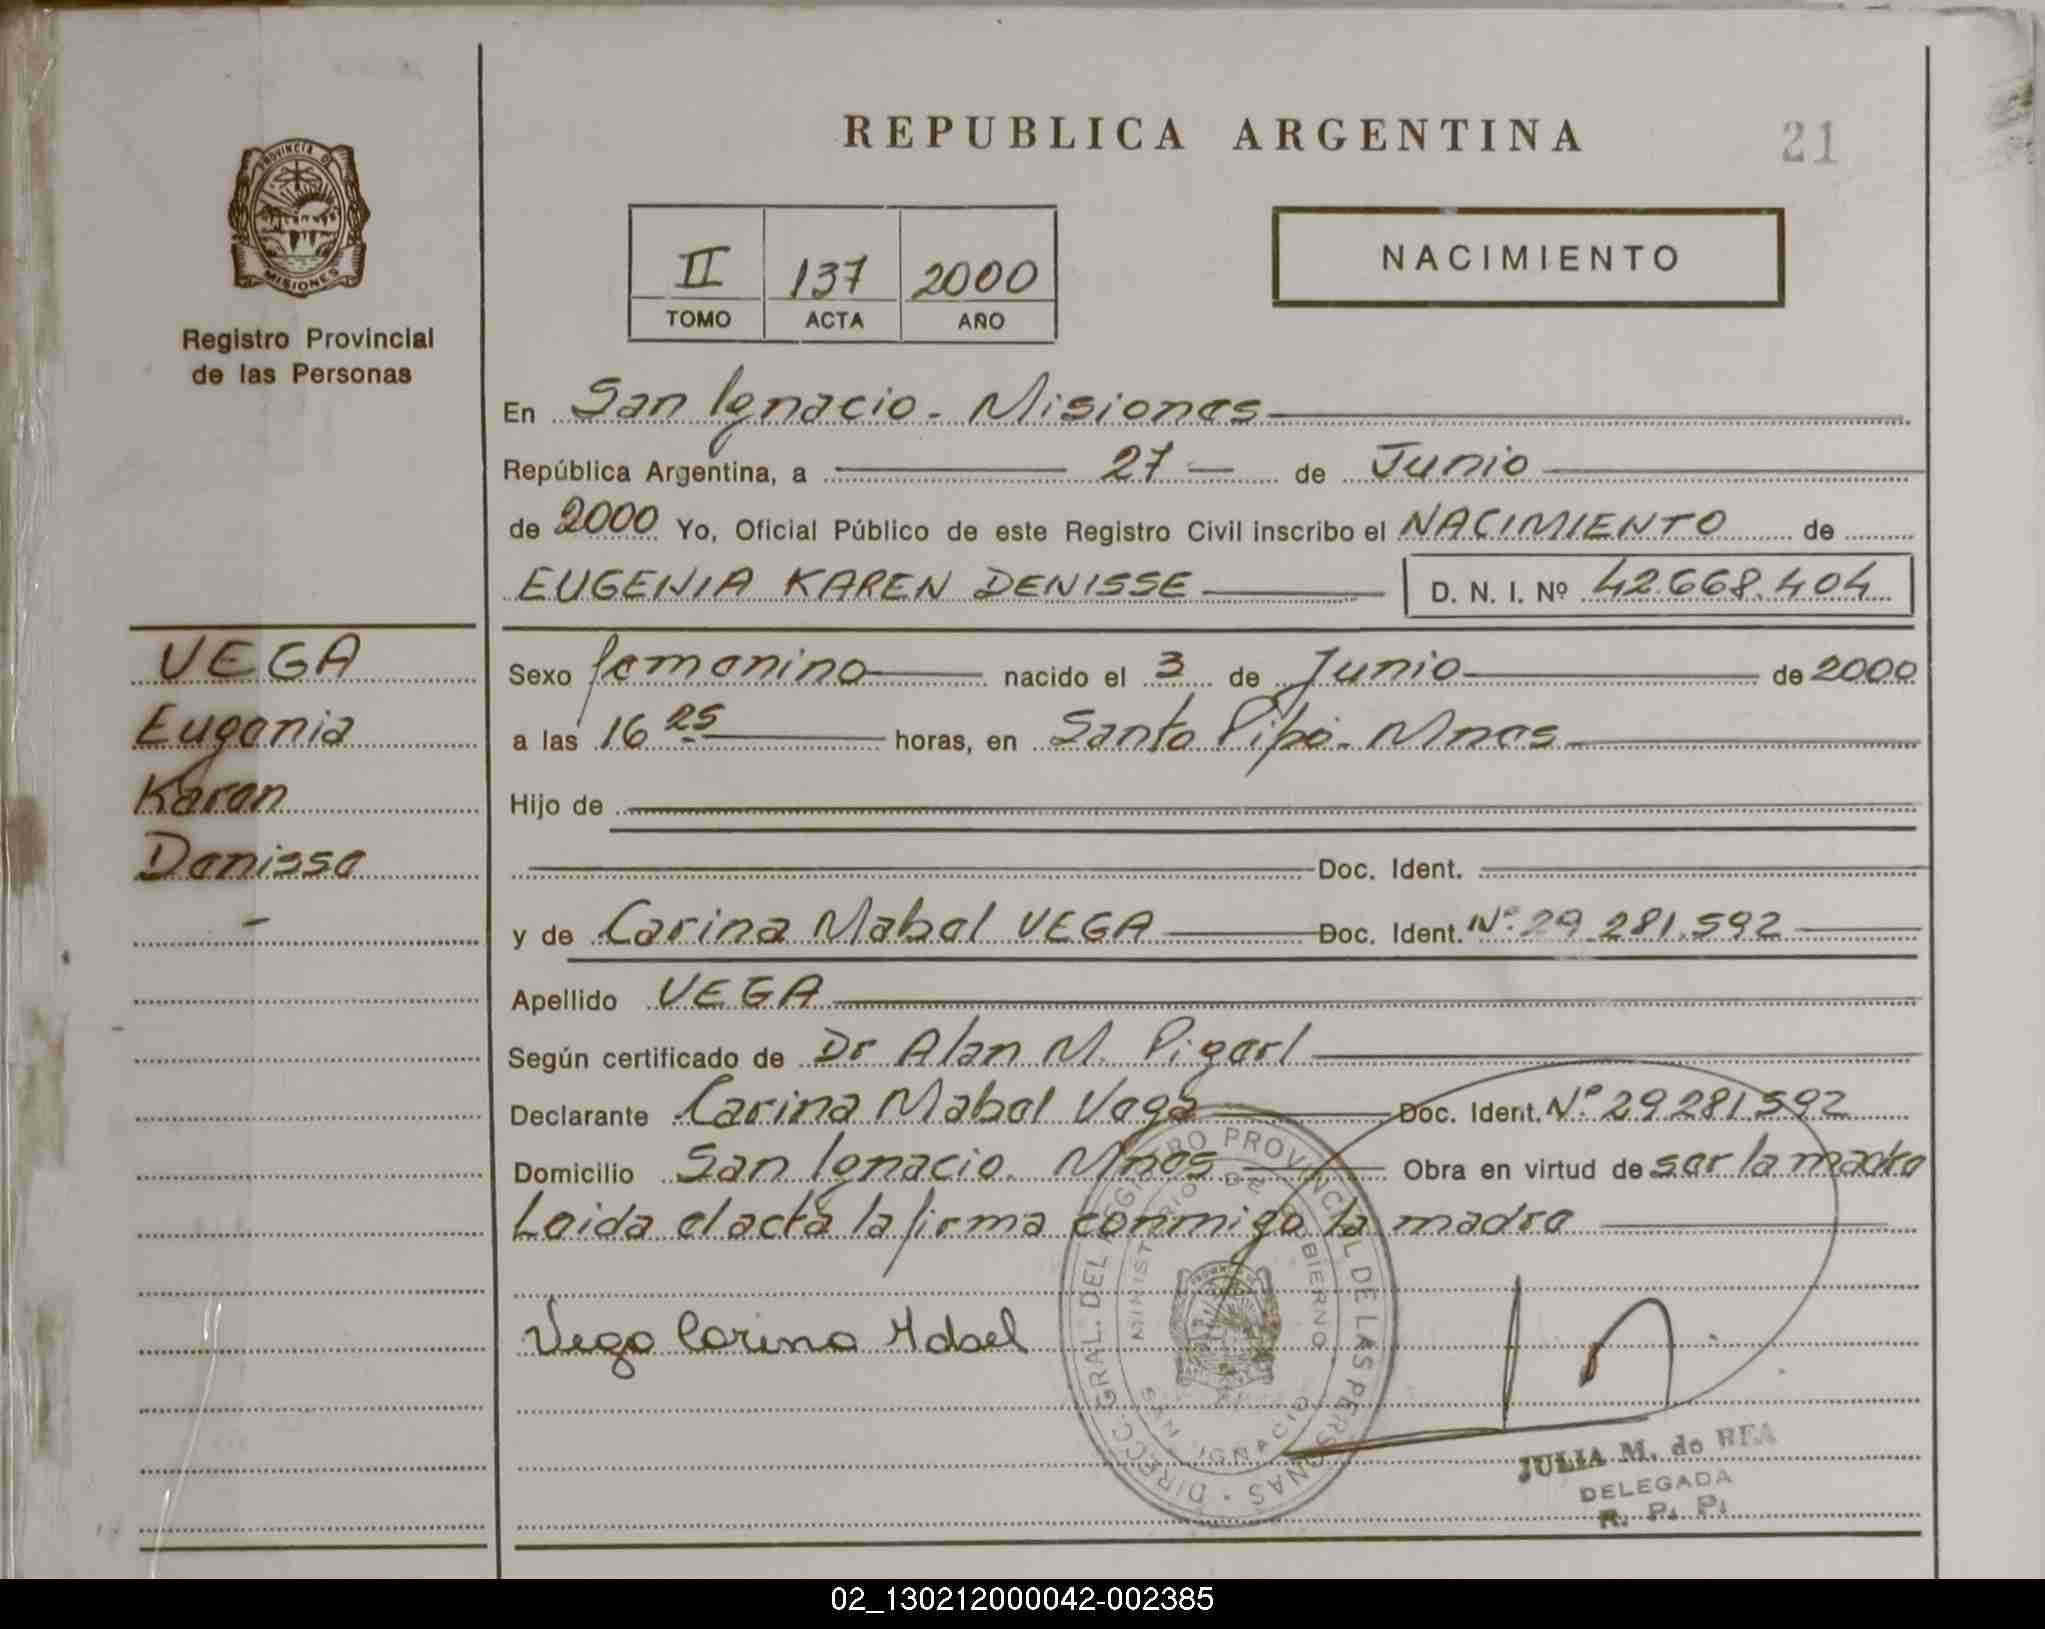 REPUBLICA ARGENTINA
21
PROVINCIA DE
MISIONES
Registro Provincial
de las Personas
II 137 2000
TOMO ACTA AÑO
NACIMIENTO
En San Ignacio - Misiones
República Argentina, a 27 de Junio
de 2000 Yo, Oficial Público de este Registro Civil inscribo el NACIMIENTO de
EUGENIA KAREN DENISSE D. N. I. Nº 42.668.404
VEGA
Eugenia
Karen
Denisse
Sexo femenino nacido el 3 de Junio de 2000
a las 16 25 horas, en Santo Pipó - Mnes
Hijo de
Doc. Ident.
y de Carina Mabel VEGA Doc. Ident. Nº 29.281.592
Apellido VEGA
Según certificado de Dr Alan M.
Declarante Carina Mabel Vega Doc. Ident. Nº 29281.592
Domicilio San Ignacio. Mnes Obra en virtud de ser la madre
Leida el acta la firma conmigo la madre
Vega Carina Mabel
DIRECC. GRAL. DEL REGISTRO PROVINCIAL DE LAS PERSONAS
MINISTERIO DE GOBIERNO
SAN IGNACIO
JULIA M. de REA
DELEGADA
R. P. P.
02_130212000042-002385